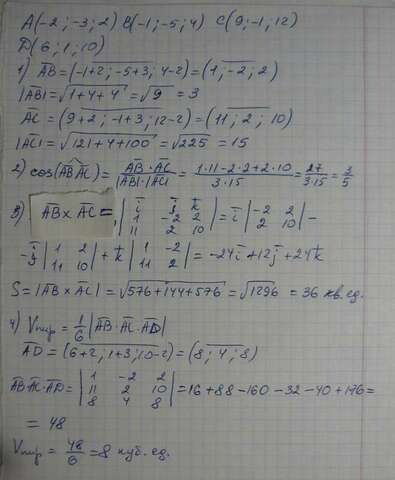 A(-2; -3; 2) B(-1; -5; 4) C(9; -1; 12)
D(6; 1; 10)
1) AB = (-1+2; -5+3; 4-2) = (1; -2; 2)
|AB| = √1+4+4 = √9 = 3
AC = (9+2; -1+3; 12-2) = (11; 2; 10)
|AC| = √121+4+100 = √225 = 15
2) cos(AB AC) = AB·AC / |AB|·|AC| = 1·11-2·2+2·10 / 3·15 = 27 / 3·15 = 3/5
3) AB×AC = | i j k ; 1 -2 2 ; 11 2 10 | = i | -2 2 ; 2 10 | -
- j | 1 2 ; 11 10 | + k | 1 -2 ; 11 2 | = -24i + 12j + 24k
S = |AB×AC| = √576+144+576 = √1296 = 36 кв.ед.
4) Vпир = 1/6 AB·AC·AD
AD = (6+2; 1+3; 10-2) = (8; 4; 8)
AB·AC·AD = | 1 -2 2 ; 11 2 10 ; 8 4 8 | = 16+88-160-32-40+176=
= 48
Vпир = 48/6 = 8 куб. ед.